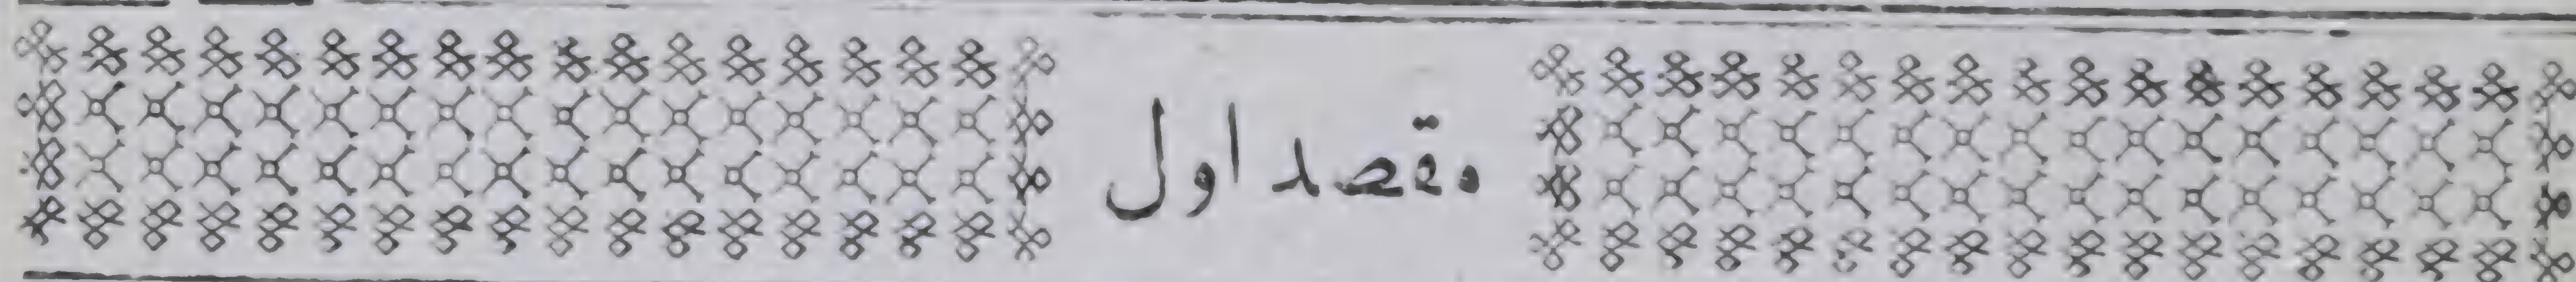 مقصد اول